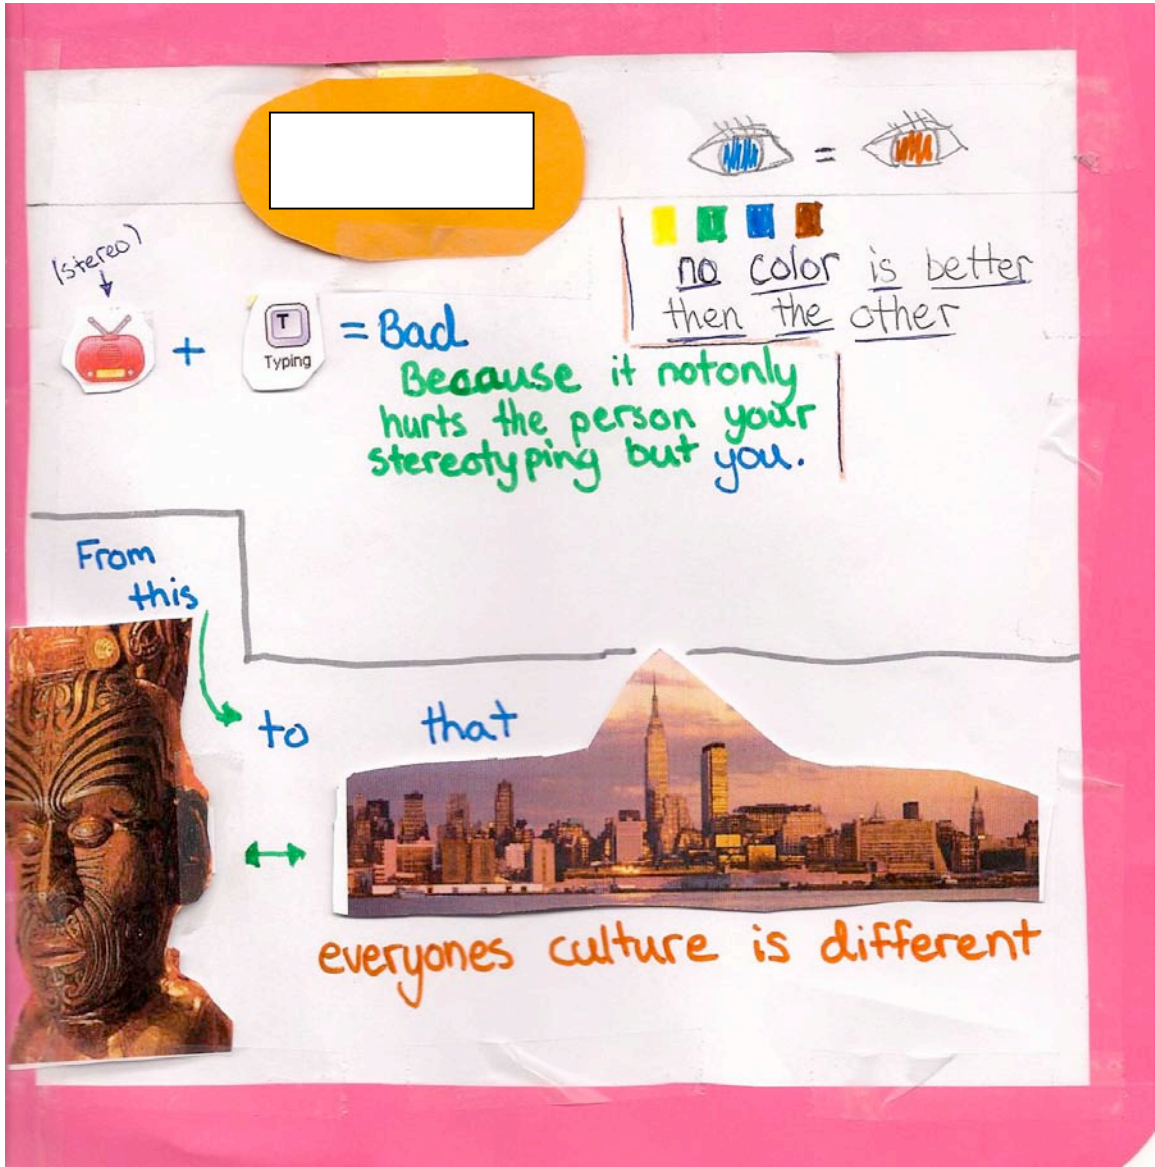 =
no color is better
then the other
(stereo)
+
T
Typing
= Bad
Because it notonly
hurts the person your
stereotyping but you.
From
this
to that
everyones culture is different